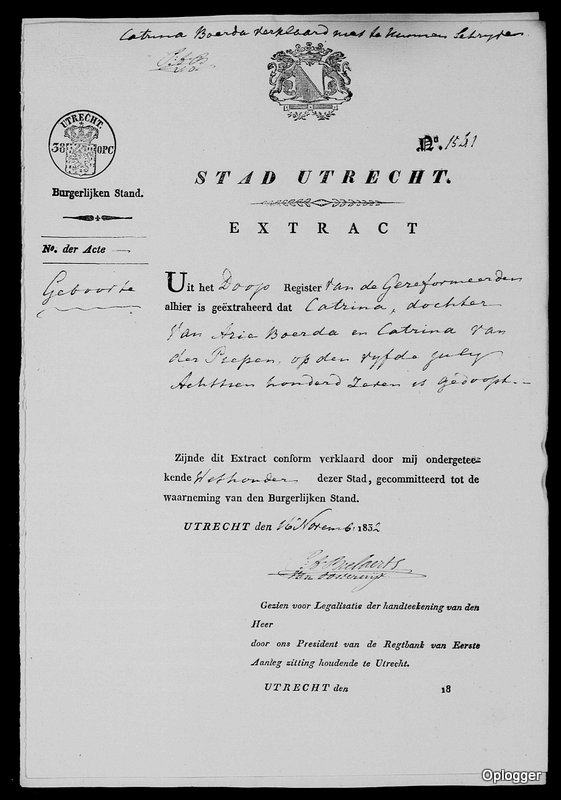 Catrina Boerda verklaard niet te kunnen Schryven
UTRECHT.
38 OPC
Nº. 1541
Burgerlijken Stand.
STAD UTRECHT.
EXTRACT
No. der Acte —
Geboorte
Uit het Doop Register van de Gereformeerden
alhier is geëxtraheerd dat Catrina, dochter
van Arie Boerda en Catrina van
der Piepen, op den vyfde July
Achttien honderd Zeven is gedoopt.—
Zijnde dit Extract conform verklaard door mij ondergetee-
kende Wethouder dezer Stad, gecommitteerd tot de
waarneming van den Burgerlijken Stand.
UTRECHT den 16 Novemb: 1832
Gezien voor Legalisatie der handteekening van den
Heer
door ons President van de Regtbank van Eerste
Aanleg zitting houdende te Utrecht.
UTRECHT den 18
Oplogger